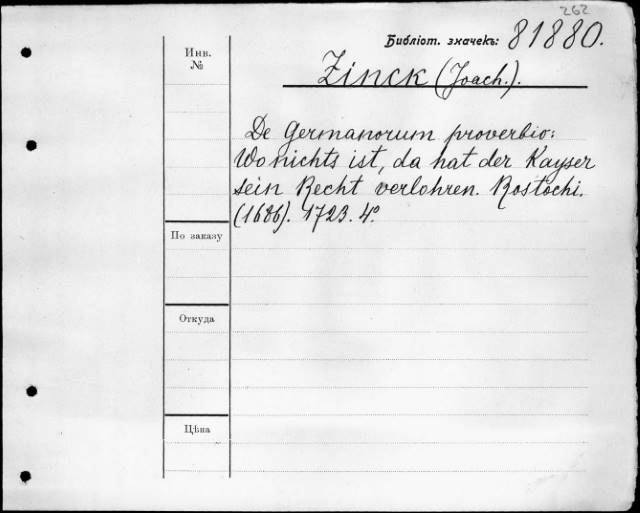 262
Библіот. значекъ: 81880.
Инв.
№
Zinck (Joach.).
De Germanorum proverbio:
Wo nichts ist, da hat der Kayser
sein Recht verlohren. Rostochi.
(1686). 1723. 4º
По заказу
Откуда
Цѣна